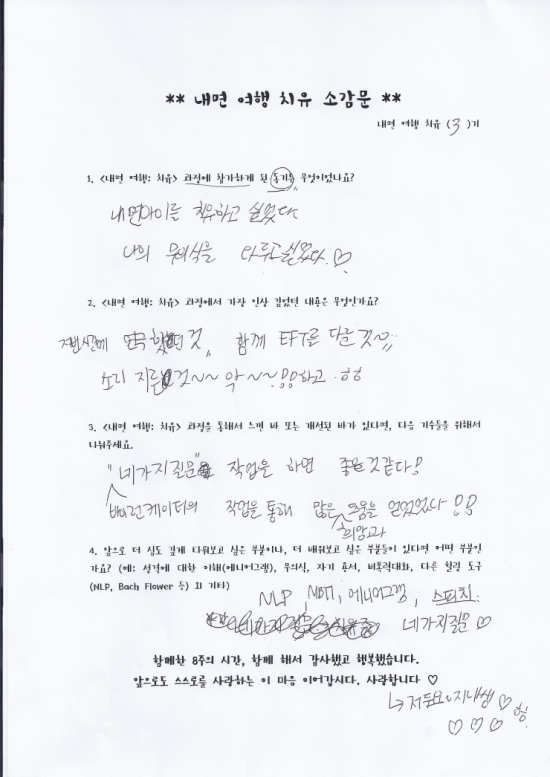 ** 내면 여행 치유 소감문 **
내면 여행 치유 (3)기
1. <내면 여행: 치유> 과정에 참가하게 된 동기는 무엇이었나요?
내면아이를 치유하고 싶었다
나의 무의식을 다루고 싶었다.♡
2. <내면 여행: 치유> 과정에서 가장 인상 깊었던 내용은 무엇인가요?
저번시간에 했던 것, 함께 EFT를 한 것~
소리 지른 것~~ 악~~!! 하고 ㅎㅎ
3. <내면 여행: 치유> 과정을 통해서 느낀 바 또는 개선된 바가 있다면, 다음 기수들을 위해서
나눠주세요.
"네가지질문" 작업을 하면 좋을것같다!
바이런케이티의 작업을 통해 많은 도움을 얻었었다!!
희망고과
4. 앞으로 더 심도 깊게 다뤄보고 싶은 부분이나, 더 배워보고 싶은 부분들이 있다면 어떤 부분인
가요? (예: 성격에 대한 이해(에니어그램), 무의식, 자기 용서, 비폭력대화, 다른 힐링 도구
(NLP, Bach Flower 등) 외 기타)
NLP, MBTI, 에니어그램, 스피치.
네가지질문 ♡
함께한 8주의 시간, 함께 해서 감사했고 행복했습니다.
앞으로도 스스로를 사랑하는 이 마음 이어갑시다. 사랑합니다 ♡
↳ 저두요~지내쌤 ♡
♡ ♡ ♡ 히힛